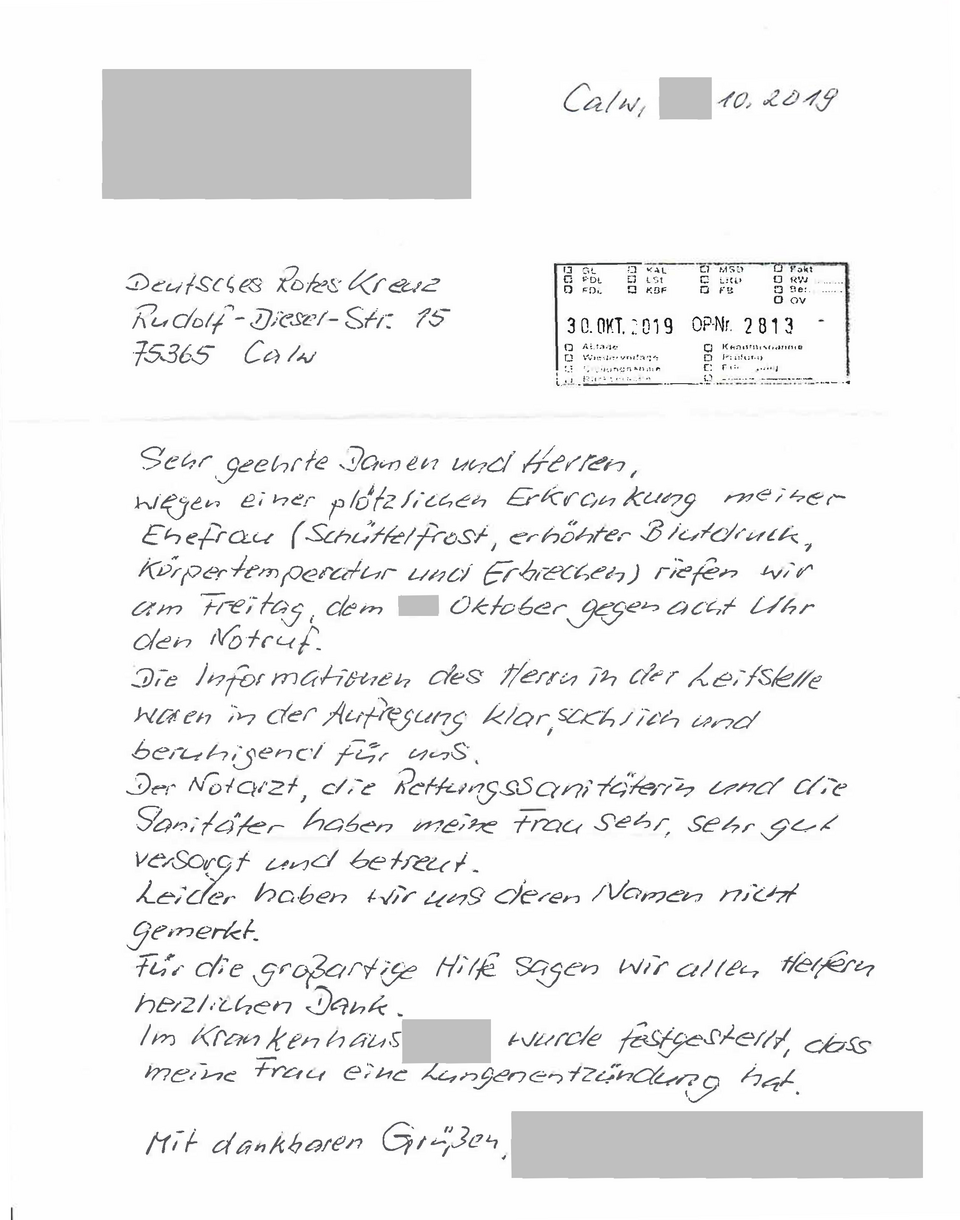 Calw, 10.2019
Deutsches Rotes Kreuz
Rudolf-Diesel-Str. 15
75365 Calw
GL KAL MSD Fakt
PDL LSt LRD RW
FDL KBF FB Ber.
OV
30.OKT.2019 OP-Nr. 2813
Ablage Kenntnisnahme
Wiedervorlage Prüfung
Stellungnahme
Rücksprache
Sehr geehrte Damen und Herren,
wegen einer plötzlichen Erkrankung meiner
Ehefrau (Schüttelfrost, erhöhter Blutdruck,
Körpertemperatur und Erbrechen) riefen wir
am Freitag, dem Oktober gegen acht Uhr
den Notruf.
Die Informationen des Herrn in der Leitstelle
waren in der Aufregung klar, sachlich und
beruhigend für uns.
Der Notarzt, die Rettungssanitäterin und die
Sanitäter haben meine Frau sehr, sehr gut
versorgt und betreut.
Leider haben wir uns deren Namen nicht
gemerkt.
Für die großartige Hilfe sagen wir allen Helfern
herzlichen Dank.
Im Krankenhaus wurde festgestellt, dass
meine Frau eine Lungenentzündung hat.
Mit dankbaren Grüßen,